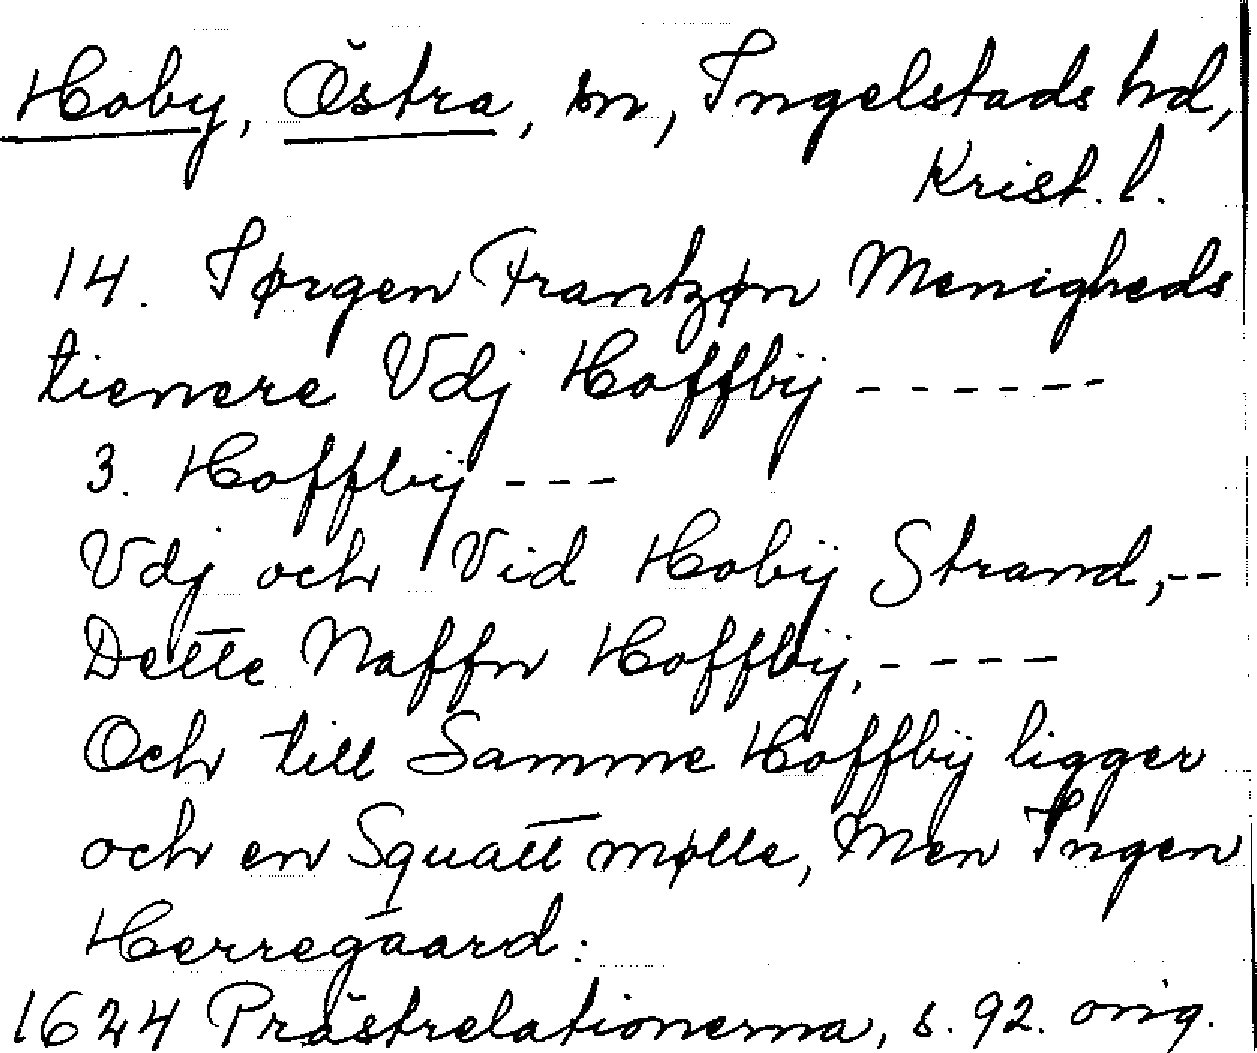 Hoby, Östra, sn, Ingelstads hd,
Krist. l.
14. Jørgen Frantzøn Menigheds
tienere Vdj Hoffbÿ ------
3. Hoffbÿ ---
Vdj och Vid Hobÿ Strand,--
Dette Naffn Hoffbÿ, ----
Och till Samme Hoffbÿ ligger
och en Squatt mølle, Men Ingen
Herregaard:
1624 Prästrelationerna, s. 92. orig.